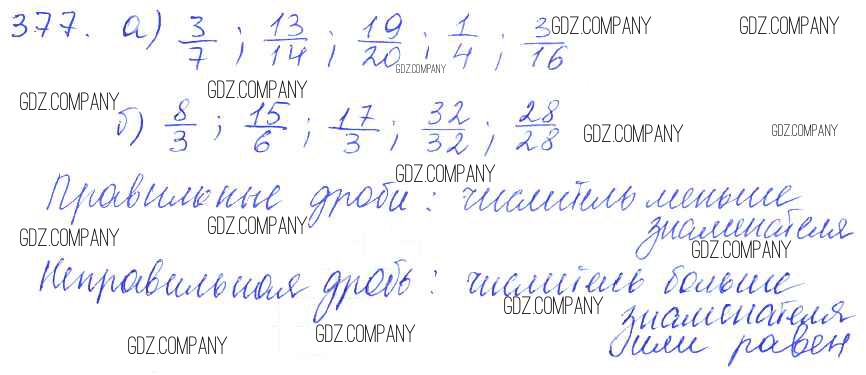 377. а) 3/7 ; 13/14 ; 19/20 ; 1/4 ; 3/16
GDZ.COMPANY GDZ.COMPANY
GDZ.COMPANY
GDZ.COMPANY GDZ.COMPANY
б) 8/3 ; 15/6 ; 17/3 ; 32/32 ; 28/28
GDZ.COMPANY GDZ.COMPANY
GDZ.COMPANY
Правильные дроби: числитель меньше
знаменателя
GDZ.COMPANY GDZ.COMPANY
GDZ.COMPANY
Неправильная дробь: числитель больше
GDZ.COMPANY
знаменателя
или равен
GDZ.COMPANY GDZ.COMPANY